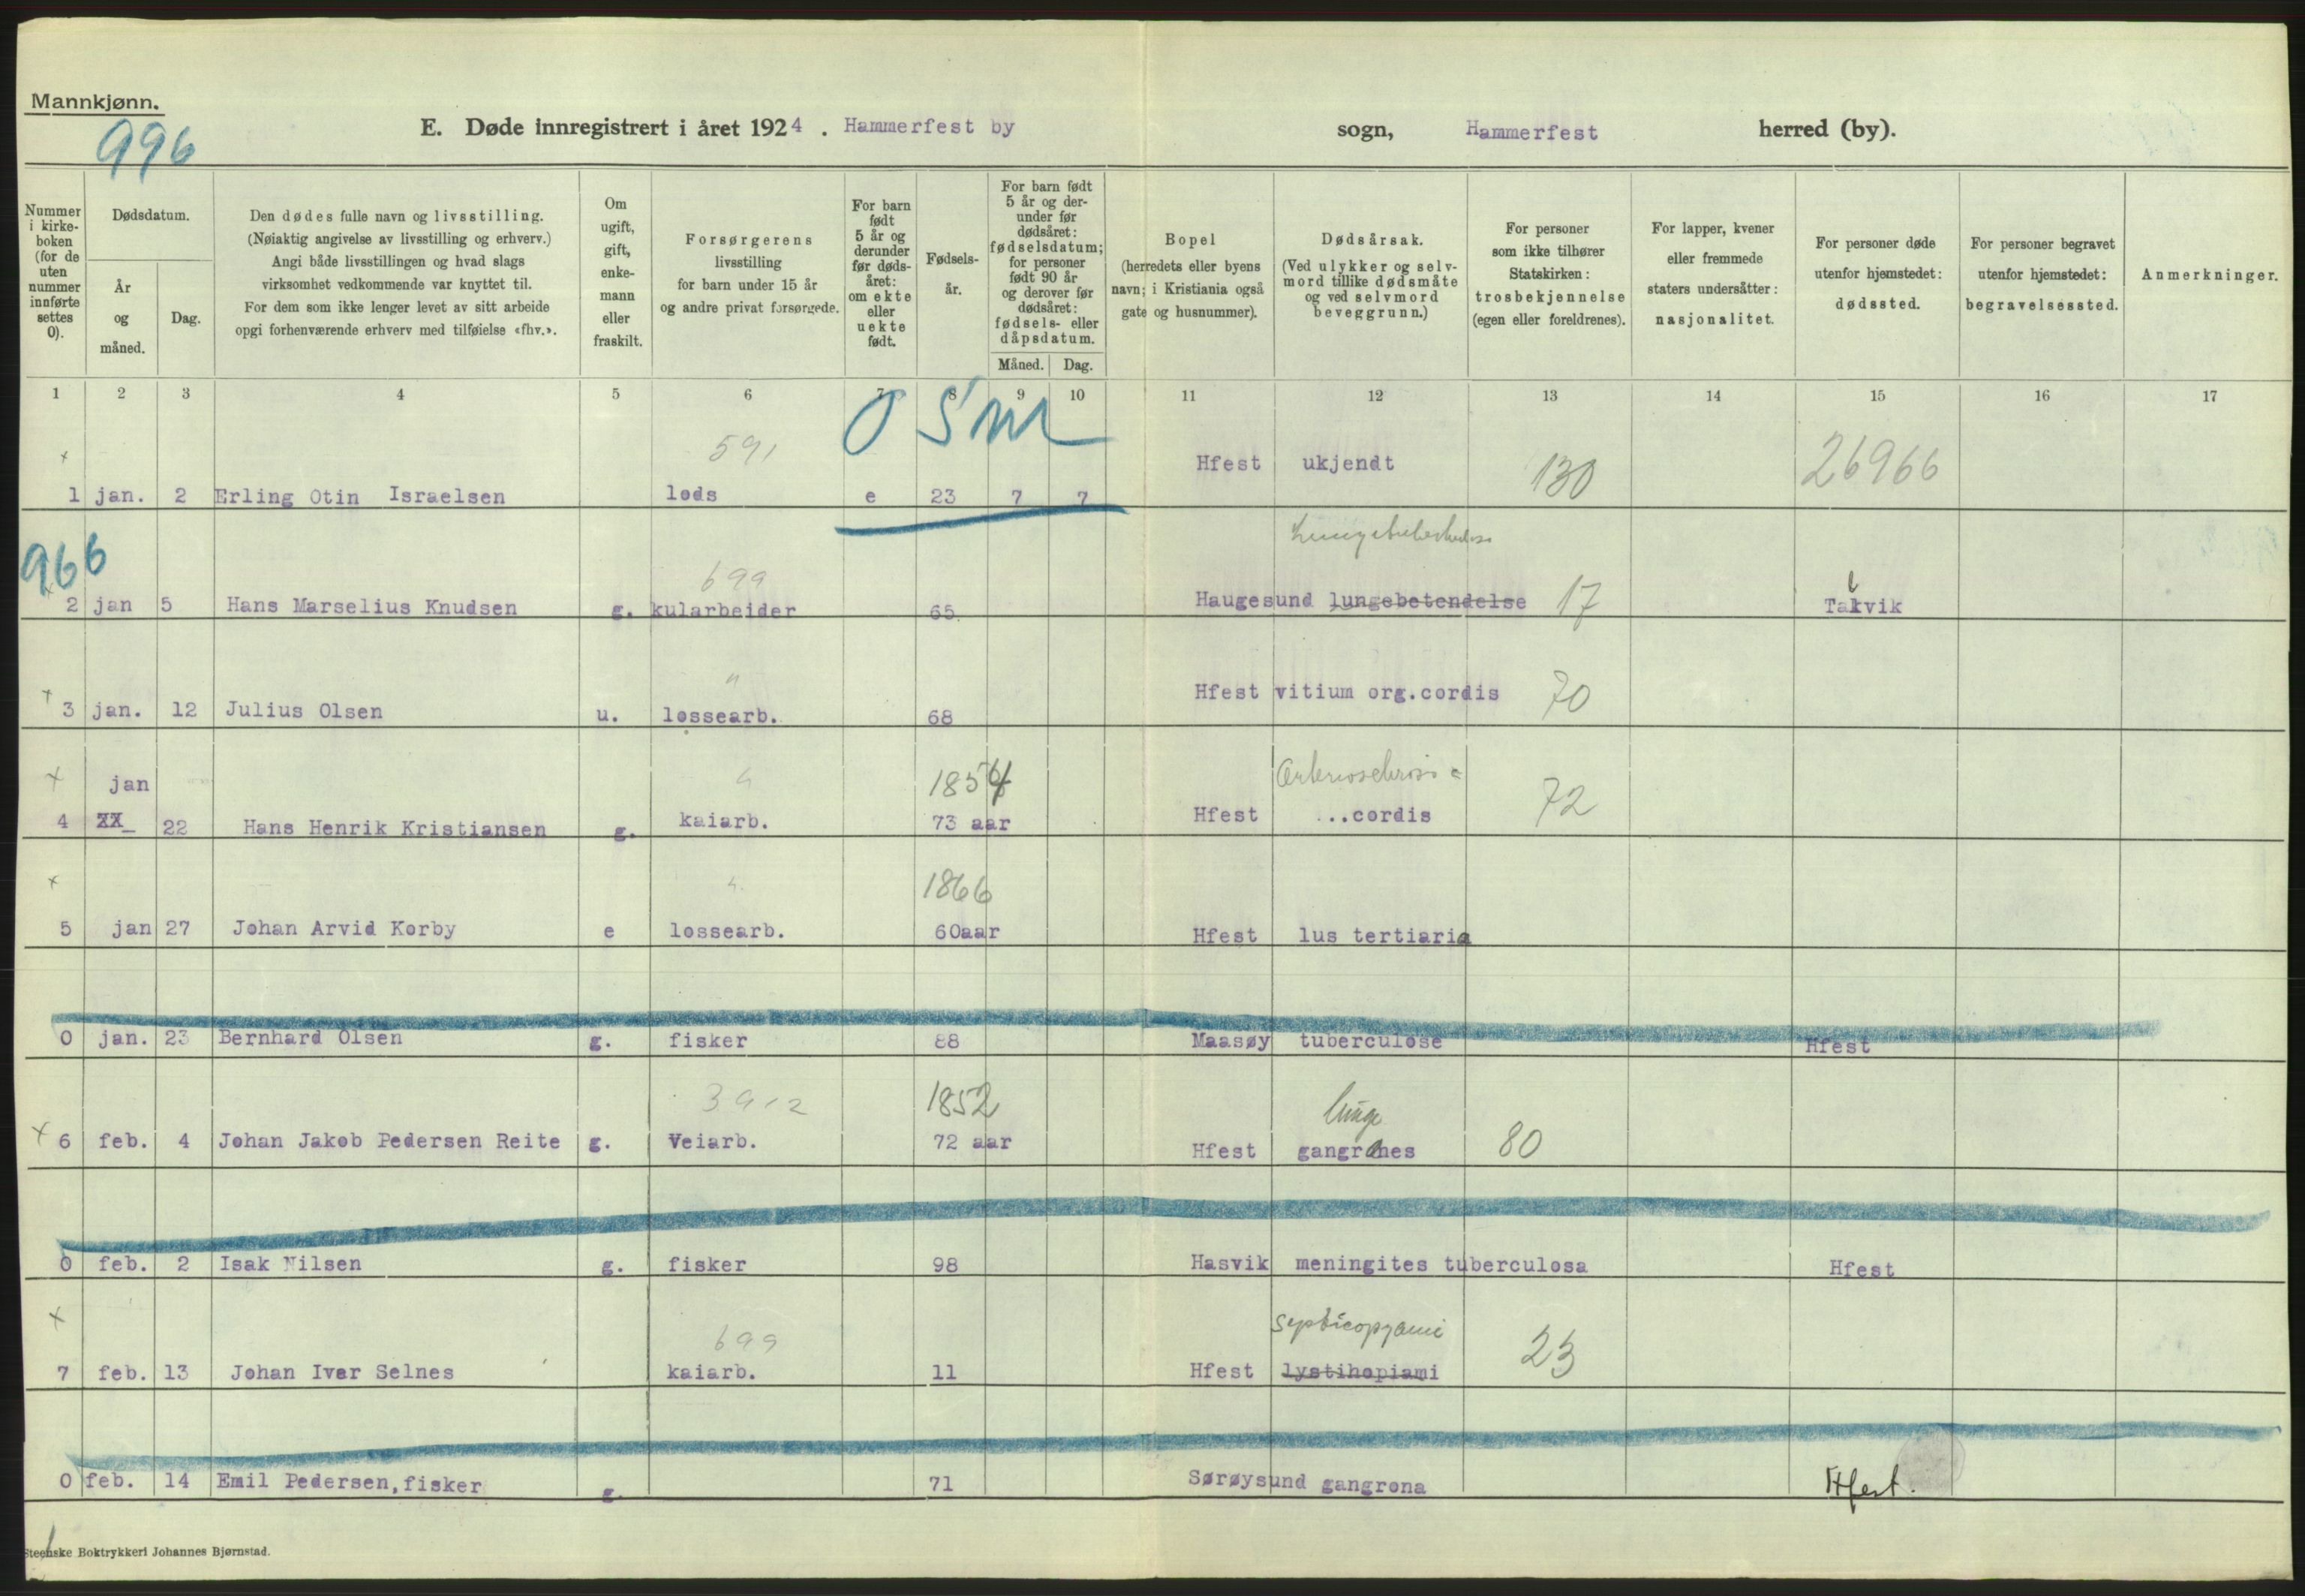 Mannkjønn.
996
E. Døde innregistrert i året 1924 . Hammerfest by sogn, Hammerfest herred (by).
Nummer i kirke- boken (for de uten nummer innførte settes 0).
Dødsdatum.
År og måned.
Dag.
Den dødes fulle navn og livsstilling.
(Nøiaktig angivelse av livsstilling og erhverv.)
Angi både livsstillingen og hvad slags
virksomhet vedkommende var knyttet til.
For dem som ikke lenger levet av sitt arbeide
opgi forhenværende erhverv med tilføielse «fhv.».
Om ugift, gift, enke- mann eller fraskilt.
Forsørgerens
livsstilling
for barn under 15 år
og andre privat forsørgede.
For barn født 5 år og derunder før døds- året: om ekte eller uekte født.
Fødsels- år.
For barn født 5 år og der- under før dødsåret: fødselsdatum; for personer født 90 år og derover før dødsåret: fødsels- eller dåpsdatum.
Måned. Dag.
Bopel
(herredets eller byens
navn; i Kristiania også
gate og husnummer).
Dødsårsak.
(Ved ulykker og selv-
mord tillike dødsmåte
og ved selvmord
beveggrunn.)
For personer
som ikke tilhører
Statskirken:
trosbekjennelse
(egen eller foreldrenes).
For lapper, kvener
eller fremmede
staters undersåtter:
nasjonalitet.
For personer døde
utenfor hjemstedet:
dødssted.
For personer begravet
utenfor hjemstedet:
begravelsessted.
Anmerkninger.
1 2 3 4 5 6 7 8 9 10 11 12 13 14 15 16 17
0 5 m
x 591 26966
1 jan. 2 Erling Otin Israelsen løds e 23 7 7 Hfest ukjendt 130
966
Lungetuberkulose
699
2 jan 5 Hans Marselius Knudsen g. kularbeider 65. Haugesund lungebetendelse 17 Takvik
x 3 jan. 12 Julius Olsen u. løssearb. 68 Hfest vitium org.cordis 70
x jan 1854 Arteriosclerosis
4 XX_ 22 Hans Henrik Kristiansen g. kaiarb. 73 aar Hfest ...cordis 72
x 1866
5 jan 27 Johan Arvid Korby e løssearb. 60aar Hfest lus tertiaria
0 jan. 23 Bernhard Olsen g. fisker 88 Maasøy tuberculose Hfest
3912 1852 lunge
x 6 feb. 4 Johan Jakob Pedersen Reite g. Veiarb. 72 aar Hfest gangrænes 80
0 feb. 2 Isak Nilsen g. fisker 98 Hasvik meningites tuberculosa Hfest
x 699 Septicopyami
7 feb. 13 Johan Iver Selnes kaiarb. 11 Hfest lystihopiami 23
0 feb. 14 Emil Pedersen, fisker g. 71 Sørøysund gangrøna Hfest.
Steenske Boktrykkeri Johannes Bjørnstad.